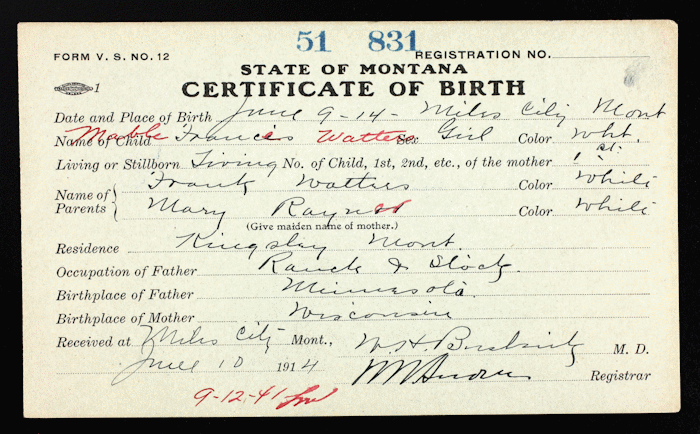 51 831
FORM V. S. NO. 12 REGISTRATION NO.
STATE OF MONTANA
1
CERTIFICATE OF BIRTH
Date and Place of Birth June 9-14- Miles City Mont
Name of Child Mable Francis Watters Sex Girl Color Wht.
Living or Stillborn Living No. of Child, 1st, 2nd, etc., of the mother 1st.
Name of Parents { Frank Watters Color White
Mary Rayner Color White
(Give maiden name of mother.)
Residence Kingsley Mont.
Occupation of Father Ranch & Stock.
Birthplace of Father Minnesota.
Birthplace of Mother Wisconsin
Received at Miles City Mont., W. H. Buskirk M. D.
June 10 1914 Registrar
9-12-41